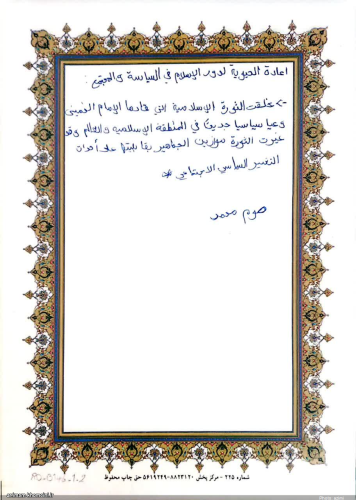 اعادة الحيوية لدور الإسلام في السياسة والمجتمع :
-> خلقت الثورة الإسلامية التي قادها الإمام الخميني
وعيا سياسيا جديدا في المنطقة الإسلامية والعالم وقد
غيرت الثورة موازين الجماهير بقابليتها على أحداث
التغيير السياسي الاجتماعي
شماره ۲۲۵ - مرکز پخش ۸۸۲۳۱۲۰-۵۶۱۹۲۴۹ حق چاپ محفوظ